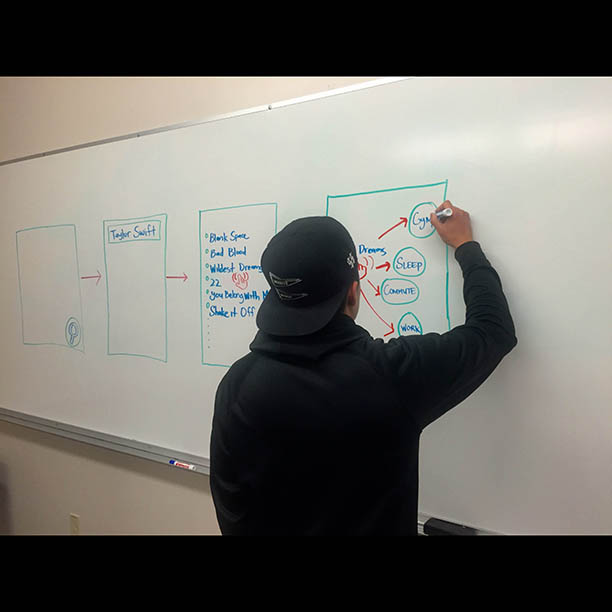 Taylor Swift
Blank Space
Bad Blood
Wildest Dreams
22
You Belong With
Shake it Off
Dreams
Gym
SLEEP
COMMUTE
WORK